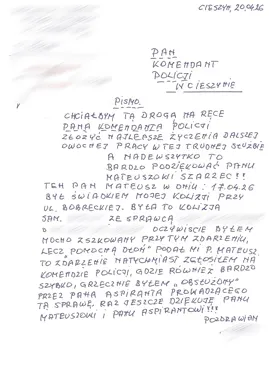 CIESZYN, 20.04.26
PAN
KOMENDANT
POLICJI
W CIESZYNIE
PISMO.
CHCIAŁBYM TĄ DROGĄ NA RĘCE
PANA KOMENDANTA POLICJI
ZŁOŻYĆ NAJLEPSZE ŻYCZENIA DALSZEJ
OWOCNEJ PRACY W TEJ TRUDNEJ SŁUŻBIE
A NADEWSZYSTKO TO
BARDZO PODZIĘKOWAĆ PANU
MATEUSZOWI SZARZEC!!
TEN PAN MATEUSZ W DNIU: 17.04.26
BYŁ ŚWIADKIEM MOJEJ KOLIZJI PRZY
UL. BOBRECKIEJ. BYŁA TO KOLIZJA
SAM. ZE SPRAWCĄ
O OCZYWIŚCIE BYŁEM
MOCNO ZSZKOWANY PRZY TYM ZDARZENIU,
LECZ "POMOCNĄ DŁOŃ" PODAŁ MI P. MATEUSZ.
TO ZDARZENIE NATYCHMIAST ZGŁOSIŁEM NA
KOMENDZIE POLICJI, GDZIE RÓWNIEŻ BARDZO
SZYBKO, GRZECZNIE BYŁEM „OBSŁUŻONY"
PRZEZ PANA ASPIRANTA PROWADZĄCEGO
TĄ SPRAWĘ. RAZ JESZCZE DZIĘKUJĘ PANU
MATEUSZOWI I PANU ASPIRANTOWI!!!
POZDRAWIAM